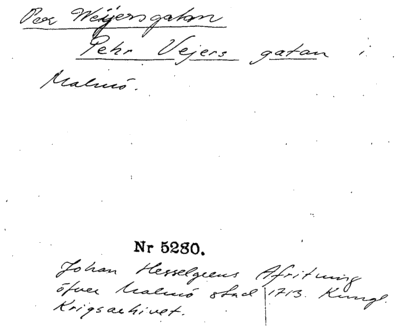 Per Weijersgatan
Pehr Vejers gatan i
Malmö.
Nr 5280.
Johan Hesselgrens Afritning
öfver Malmö stad 1713. Kungl.
Krigsarkivet.